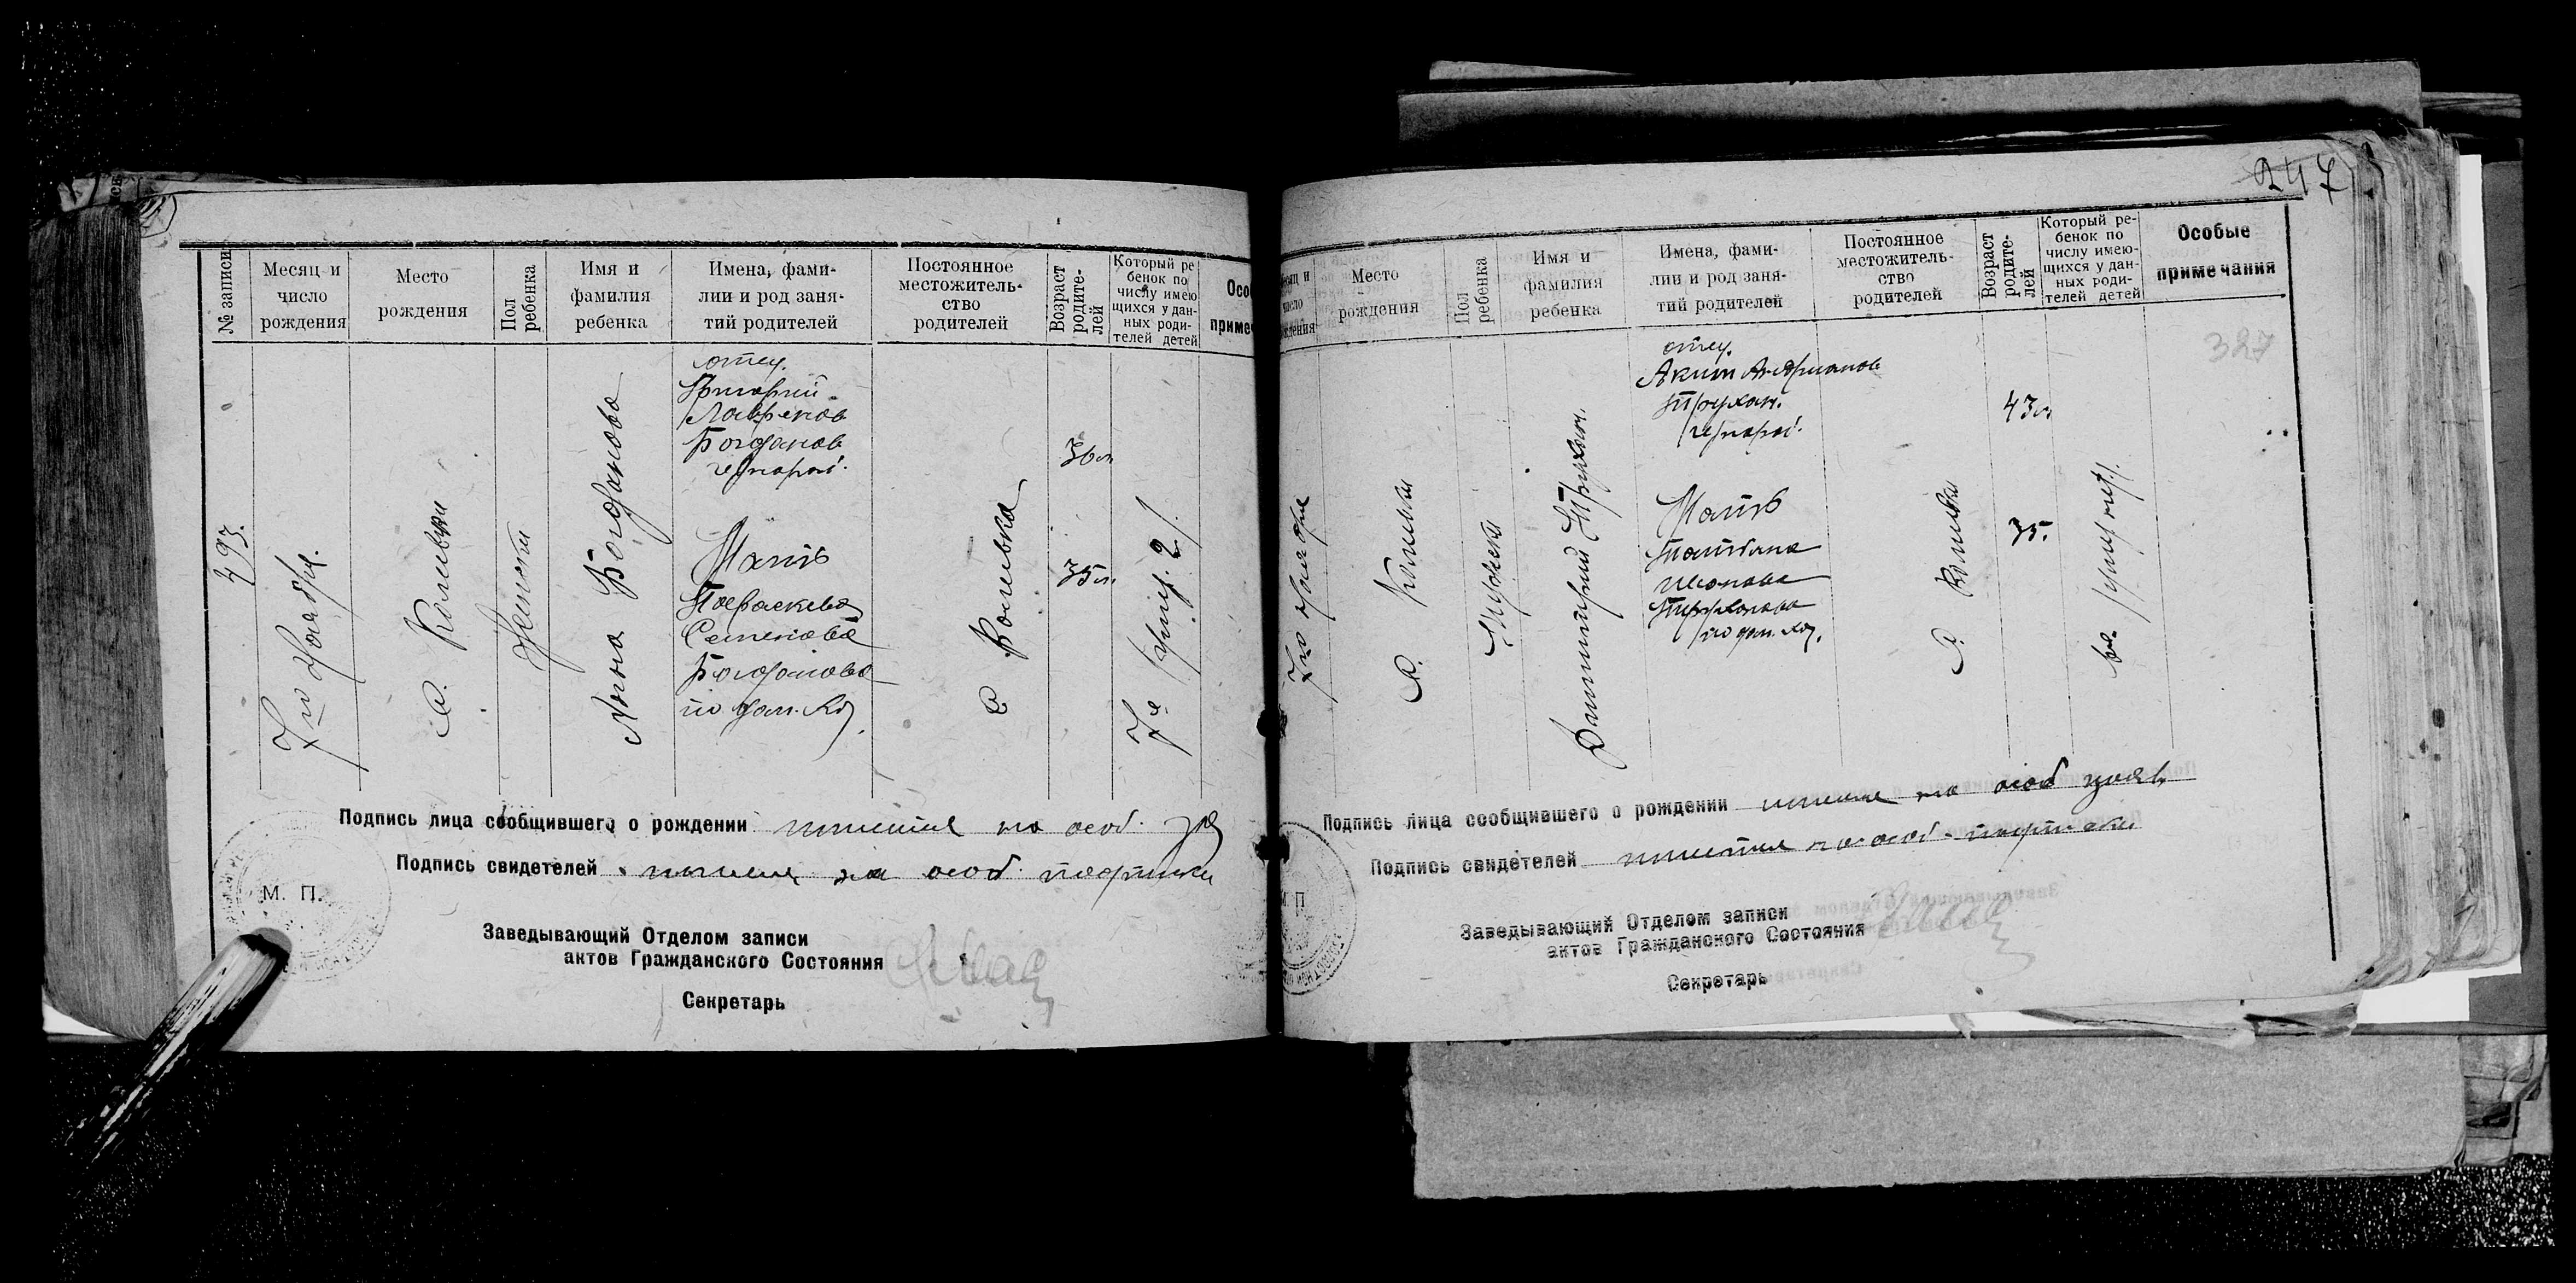 № записи
Месяц и
число
рождения
Место
рождения
Пол
ребенка
Имя и
фамилия
ребенка
Имена, фами-
лии и род заня-
тий родителей
Постоянное
местожитель-
ство
родителей
Возраст
родите-
лей
Который ре
бенок по
числу имею
щихся у дан-
ных роди-
телей детей
Осо
приме
293.
7го Ноября.
с.
женский
Нина Богданова
отец.
Григорий
Лавренов
Богданов
Мать
Параскева
Семенова
Богданова
по дом. хоз.
с
36л
35л.
7й
Подпись лица сообщившего о рождении имеется на особ.
Подпись свидетелей имеется на особ подписки
М. П.
Заведывающий Отделом записи
актов Гражданского Состояния
Секретарь
247
Место
рождения
Пол
ребенка
Имя и
фамилия
ребенка
Имена, фами-
лии и род заня-
тий родителей
Постоянное
местожитель-
ство
родителей
Возраст
родите-
лей
Который ре-
бенок по
числу имею-
щихся у дан-
ных роди-
телей детей
Особые
примечания
327
7го Ноября
с.
мужской
Димитрий Трухан.
отец.
Аким Андрианов
Трухан.
Мать
Татьяна
Иванова
Труханова
по дом. хоз.
с.
43л
35.
Подпись лица сообщившего о рождении имеется на особ заяв.
Подпись свидетелей имеется на особ. подписки
М П
Заведывающий Отделом записи
актов Гражданского Состояния
Секретарь